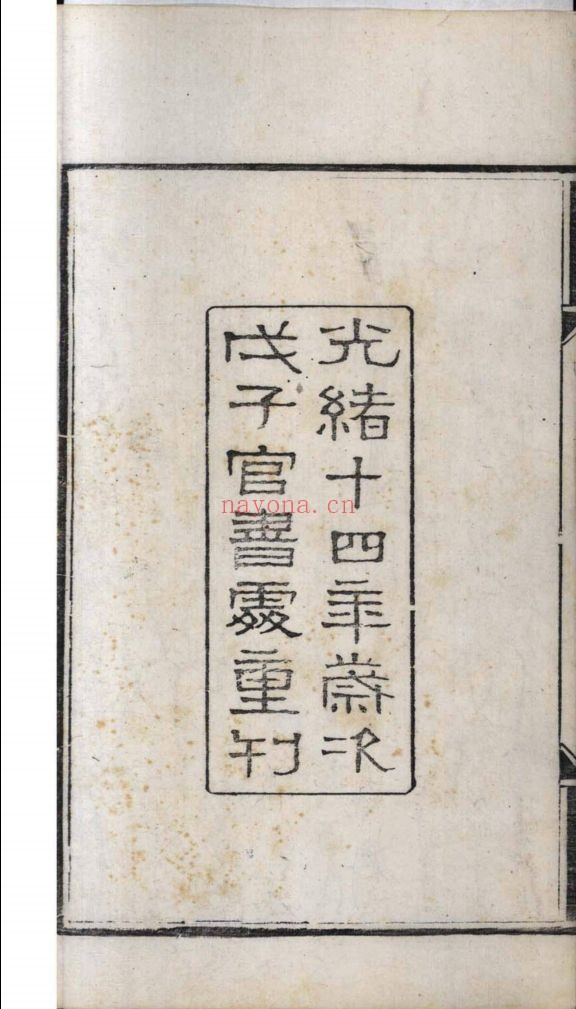 光緒十四年歲次
戊子官書處重刊
navona.cn